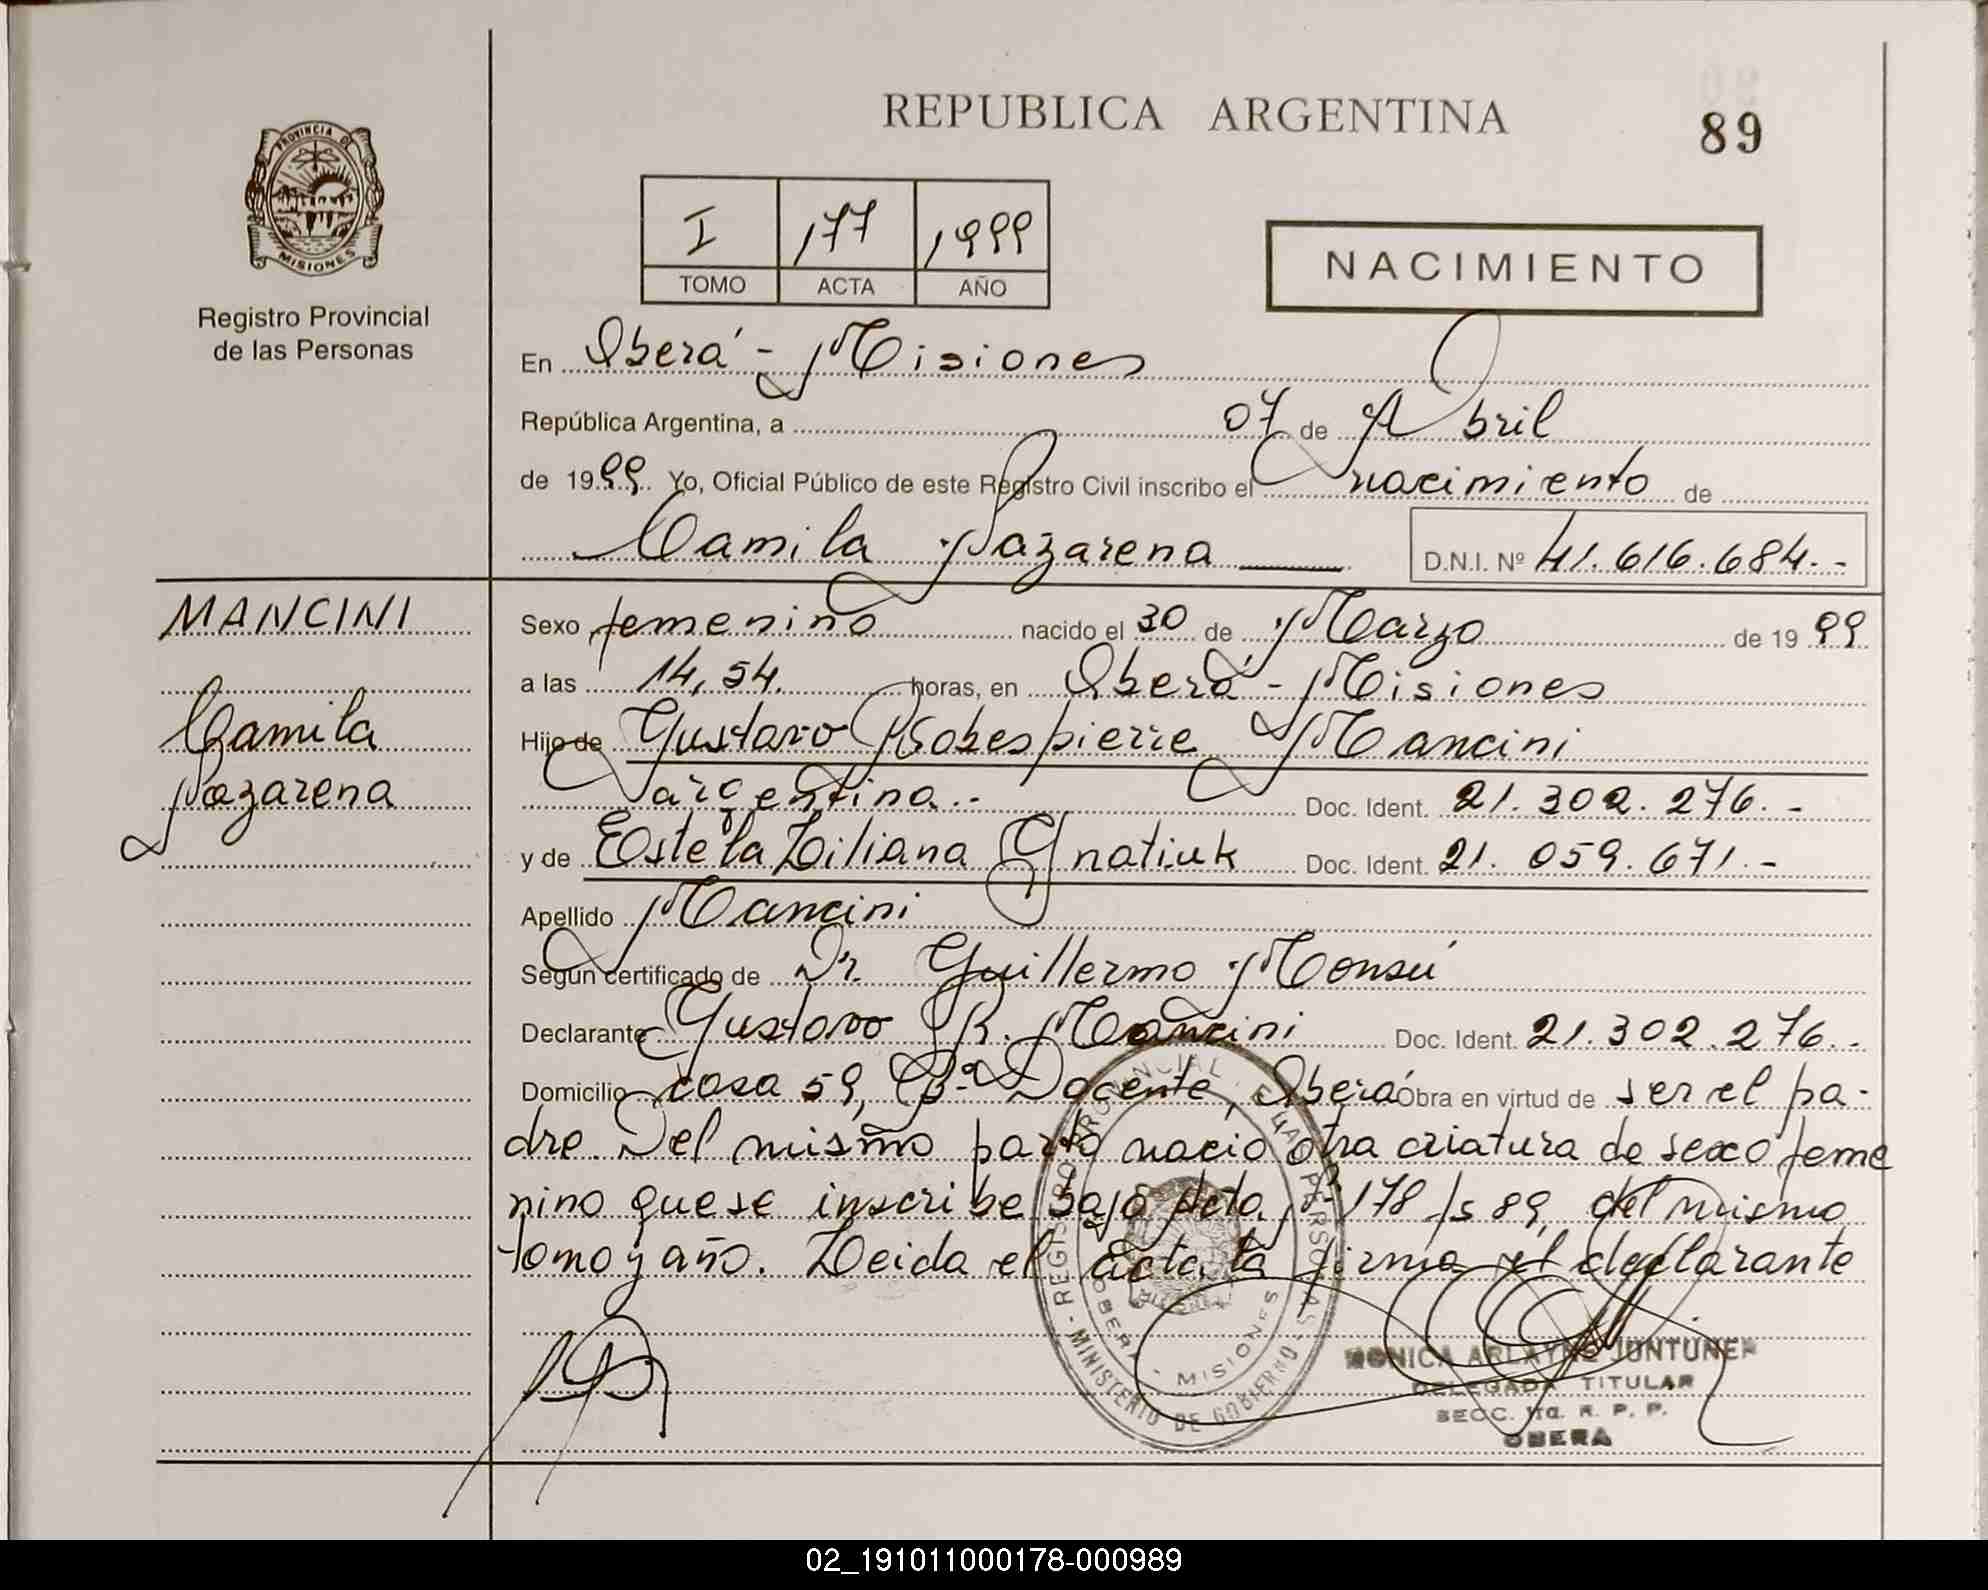 REPUBLICA ARGENTINA
89
PROVINCIA DE
MISIONES
Registro Provincial
de las Personas
I 177 1999
TOMO ACTA AÑO
NACIMIENTO
En Oberá - Misiones
República Argentina, a 07 de Abril
de 1999 Yo, Oficial Público de este Registro Civil inscribo el nacimiento de
Camila Nazarena D.N.I. Nº 41.616.684.-
MANCINI
Camila
Nazarena
Sexo femenino nacido el 30 de Marzo de 1999
a las 14,54. horas, en Oberá - Misiones
Hijo de Gustavo Robespierre Mancini
argentina.- Doc. Ident. 21.302.276.-
y de Estela Liliana Gnatiuk Doc. Ident. 21.059.671.-
Apellido Mancini
Según certificado de Dr. Guillermo Monsú
Declarante Gustavo R. Mancini Doc. Ident. 21.302.276.-
Domicilio casa 59, Bº Docente, Oberá Obra en virtud de ser el pa-
dre. Del mismo parto nacio otra criatura de sexo feme
nino que se inscribe bajo Acta 178 fs 89 del mismo
tomo y año. Leida el acta, la firma el declarante
REGISTRO PROVINCIAL DE LAS PERSONAS - MINISTERIO DE GOBIERNO -
OBERA - MISIONES
MONICA ARLAYNE JUNTUNEN
DELEGADA TITULAR
SECC. 1ra. R. P. P.
OBERA
02_191011000178-000989